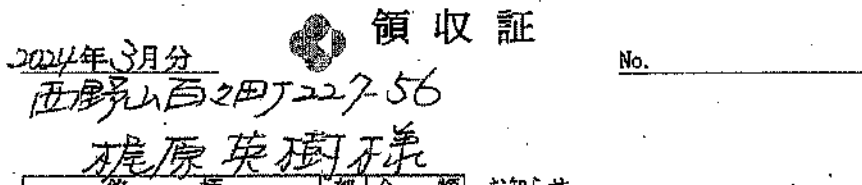 領収証
2024年3月分
No.
西野山百々町227-56
梶原英樹様
お知らせ